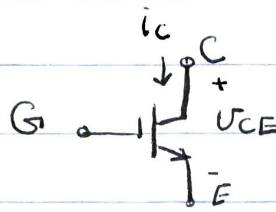 iC
C
+
G
VCE
-
E